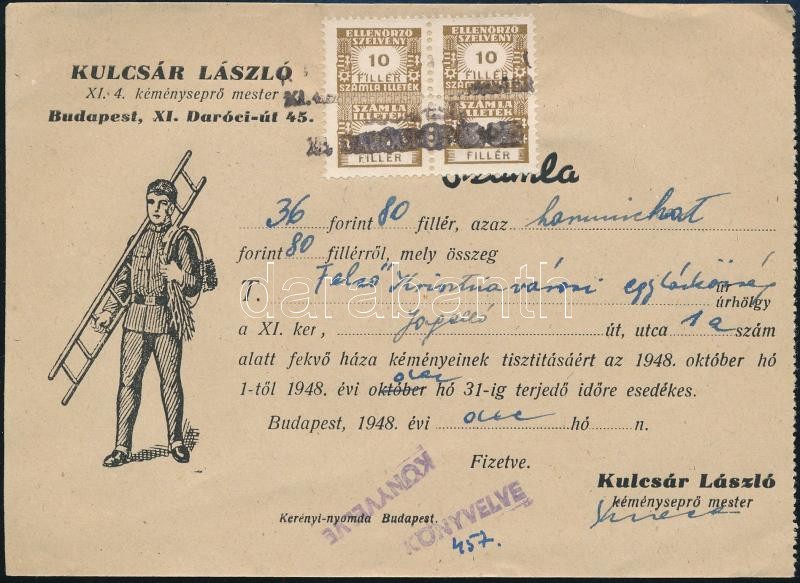 KULCSÁR LÁSZLÓ
XI. 4. kéményseprő mester
Budapest, XI. Daróci-út 45.
ELLENŐRZŐ SZELVÉNY ELLENŐRZŐ SZELVÉNY
10 10
FILLÉR FILLÉR
SZÁMLA ILLETÉK SZÁMLA ILLETÉK
SZÁMLA ILLETÉK SZÁMLA ILLETÉK
FILLÉR FILLÉR
Számla
36 forint 80 fillér, azaz harminchat
forint 80 fillérről, mely összeg
T. Felső Krisztinavárosi egyházközség úr
úrhölgy
a XI. ker., út, utca 1a szám
alatt fekvő háza kéményeinek tisztitásáért az 1948. október hó
dec
1-től 1948. évi október hó 31-ig terjedő időre esedékes.
Budapest, 1948. évi dec hó n.
Fizetve.
Kulcsár László
kéményseprő mester
KÖNYVELVE
KÖNYVELVE
457.
Kerényi-nyomda Budapest.
darabanth